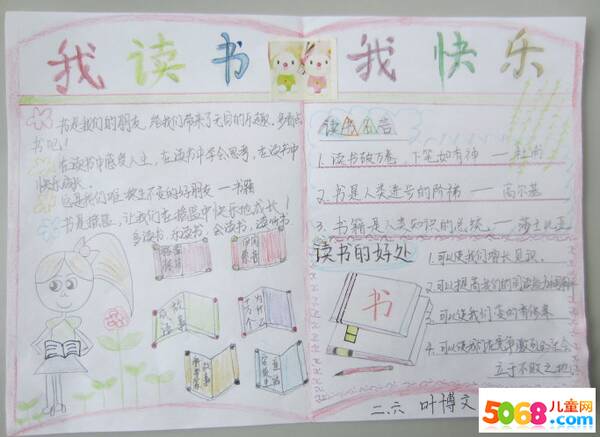 我读书 我快乐
书是我们的朋友，给我们带来了无目的乐趣，多看点
书吧！
在读书中感受人生，在读书中学会思考，在读书中
快乐成长。
它是我们唯一不变的好朋友——书籍
书是摇篮，让我们在摇篮中快乐地成长！
多读书，乐读书，会读书，读好书
成语故事
为什么
读书名言
1. 读书破万卷，下笔如有神——杜甫
2. 书是人类进步的阶梯——高尔基
3. 书籍是人类知识的总统——莎士比亚
读书的好处
书
1. 可以使我们增长见识。
2. 可以提高我们的阅读能力
3. 可以使我们变的有修养
4. 可以使我们在竞争激烈的社会
立于不败之地
二.六 叶博文
5068儿童网
www.5068.com